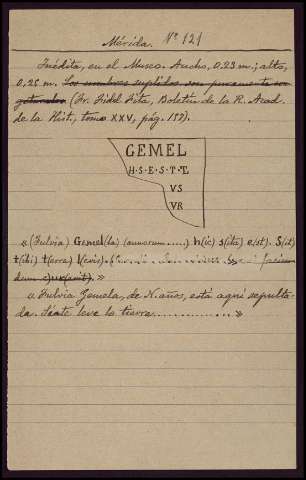 Mérida. Nº 121
Inédita, en el Museo. Ancho, 0,23 m.; alto,
0,25 m. Los nombres suplidos son puramente con
geturales (Fr. Fidel Fita, Boletín de la R. Acad.
de la Hist., tomo XXV, pág. 157).
GEMEL
H·S·E·S·T·L
VS
VR
«(Fulvia) Gemel(la) (annorum .....) h(ic) s(ita) e(st). S(it)
t(ibi) t(erra) l(evis).
dum c)ur(avit). »
« Fulvia Gemela, de N. años, está aquí sepulta-
da. Séate leve la tierra .............. »